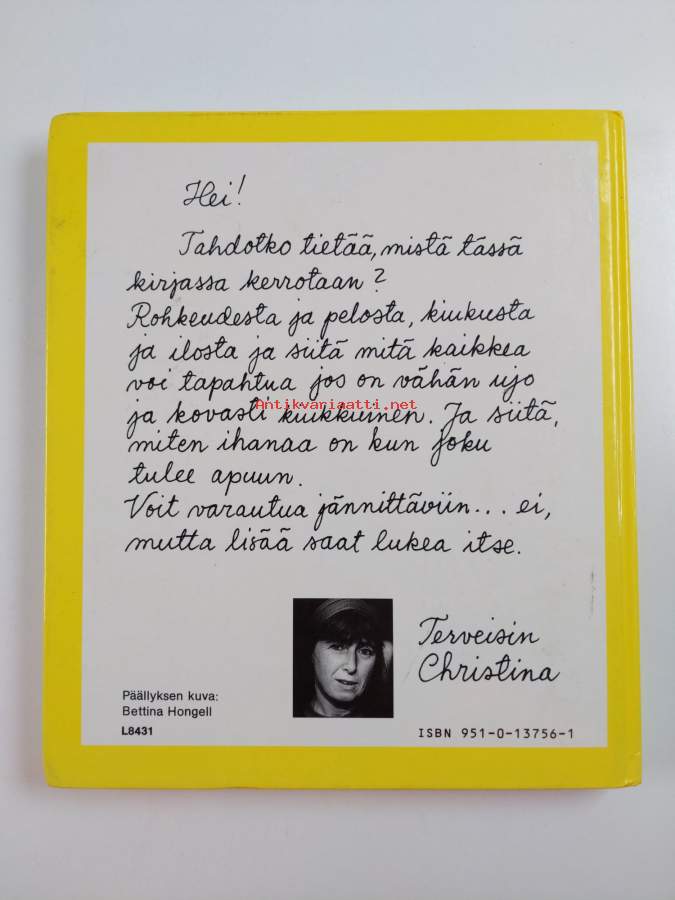 Hei!
Tahdotko tietää, mistä tässä
kirjassa kerrotaan?
Rohkeudesta ja pelosta, kiukusta
ja ilosta ja siitä mitä kaikkea
voi tapahtua jos on vähän ujo
Antikvariaatti.net
ja kovasti kiukkuinen. Ja siitä,
miten ihanaa on kun joku
tulee apuun.
Voit varautua jännittäviin... ei,
mutta lisää saat lukea itse.
Terveisin
Christina
Päällyksen kuva:
Bettina Hongell
L8431
ISBN 951-0-13756-1